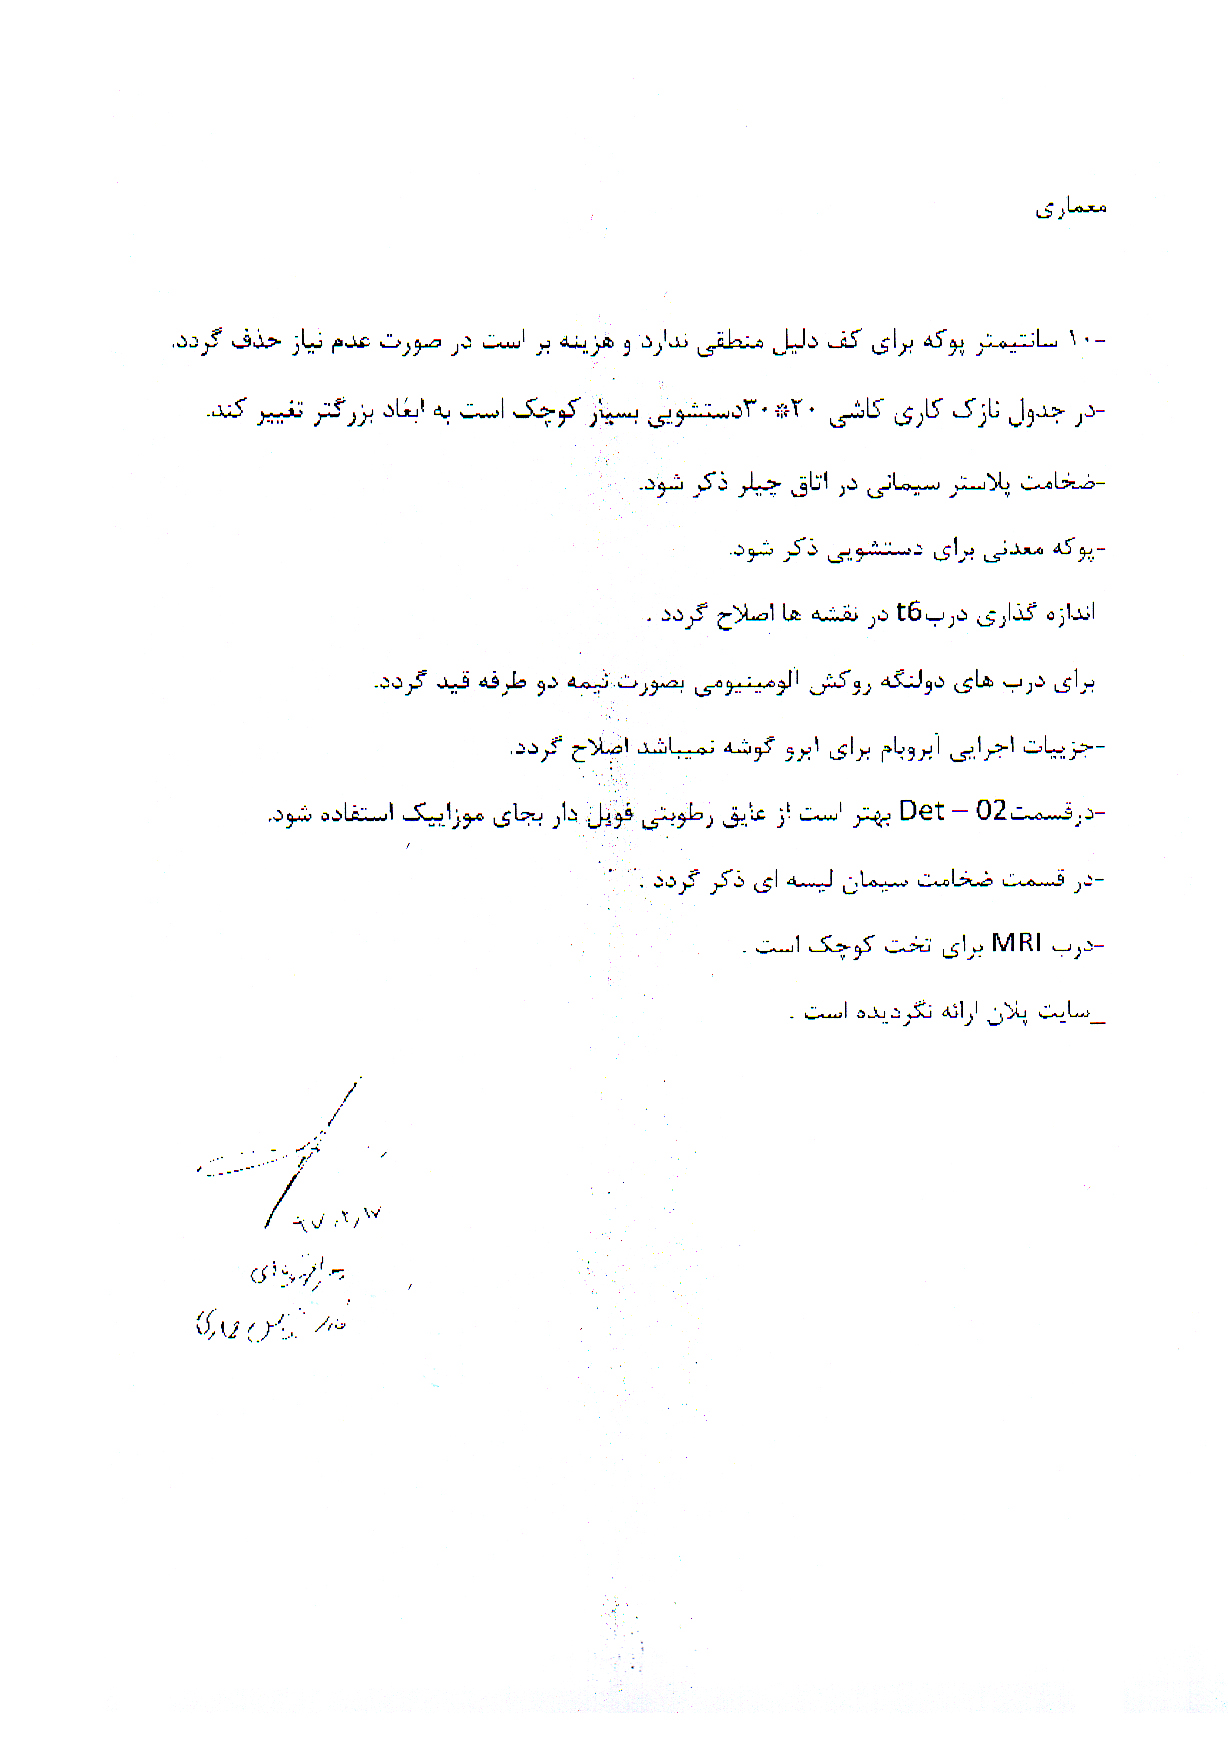 معماری
-۱۰ سانتیمتر پوکه برای کف دلیل منطقی ندارد و هزینه بر است در صورت عدم نیاز حذف گردد.
-در جدول نازک کاری کاشی ۲۰*۳۰دستشویی بسیار کوچک است به ابعاد بزرگتر تغییر کند.
-ضخامت پلاستر سیمانی در اتاق چیلر ذکر شود.
-پوکه معدنی برای دستشویی ذکر شود.
اندازه گذاری دربt6 در نقشه ها اصلاح گردد .
برای درب های دولنگه روکش الومینیومی بصورت نیمه دو طرفه قید گردد.
-جزییات اجرایی آبروبام برای ابرو گوشه نمیباشد اصلاح گردد.
-درقسمتDet – 02 بهتر است از عایق رطوبتی فویل دار بجای موزاییک استفاده شود.
-در قسمت ضخامت سیمان لیسه ای ذکر گردد .
-درب MRI برای تخت کوچک است .
_سایت پلان ارائه نگردیده است .
۹۷,۲,۱۷